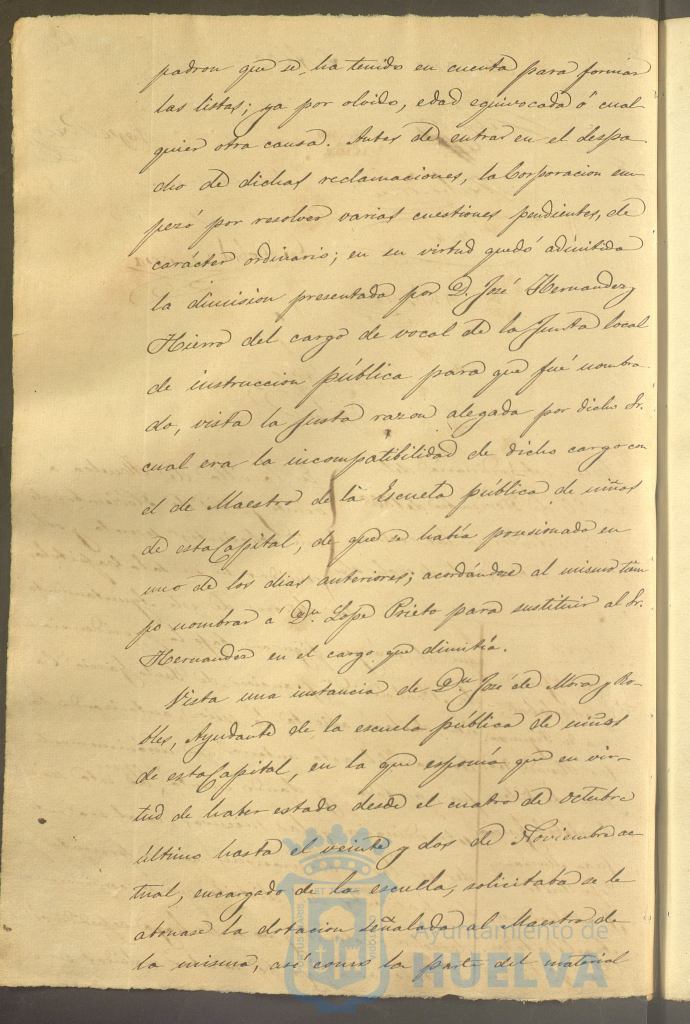 padron que se ha tenido en cuenta para formar
las listas; ya por olvido, edad equivocada ó cual-
quier otra causa. Antes de entrar en el despa-
cho de dichas reclamaciones, la Corporacion em-
pezó por resolver varias cuestiones pendientes, de
carácter ordinario; en su virtud quedó admitida
la dimision presentada por D. José Hernandez
Hierro del cargo de vocal de la Junta local
de instruccion pública para que fué nombra-
do, vista la justa razon alegada por dicho Sr.
cual era la incompatibilidad de dicho cargo con
el de Maestro de la Escuela pública de niños
de esta Capital, de que se habia posesionado en
uno de los dias anteriores; acordándose al mismo tiem-
po nombrar á Dn. Lope Prieto para sustituir al Sr.
Hernandez en el cargo que dimitía.
Vista una instancia de Dn. José de Mora y Ro-
bles, Ayudante de la escuela pública de niños
de esta Capital, en la que esponia que en vir-
tud de haber estado desde el cuatro de Octubre
último hasta el veinte y dos de Noviembre ac-
tual, encargado de la escuela, solicitaba se le
abonase la dotacion señalada al Maestro de
la misma, así como la parte del material
Ayuntamiento de
HUELVA